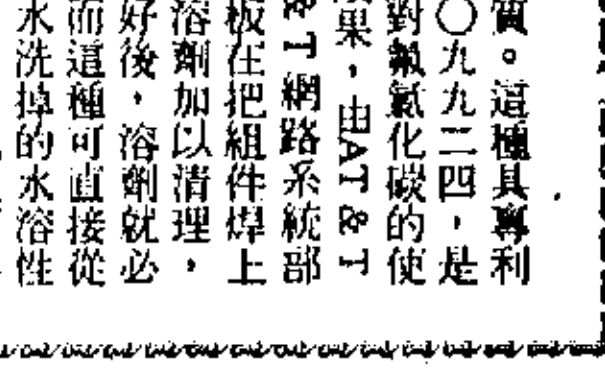 質。這種具專利
〇九九二四,是
對氟氯化碳的使
果,由AT&T
&T網路系統部
板在把組件焊上
溶劑加以清理,
好後,溶劑就必
而這種可直接從
水洗掉的水溶性